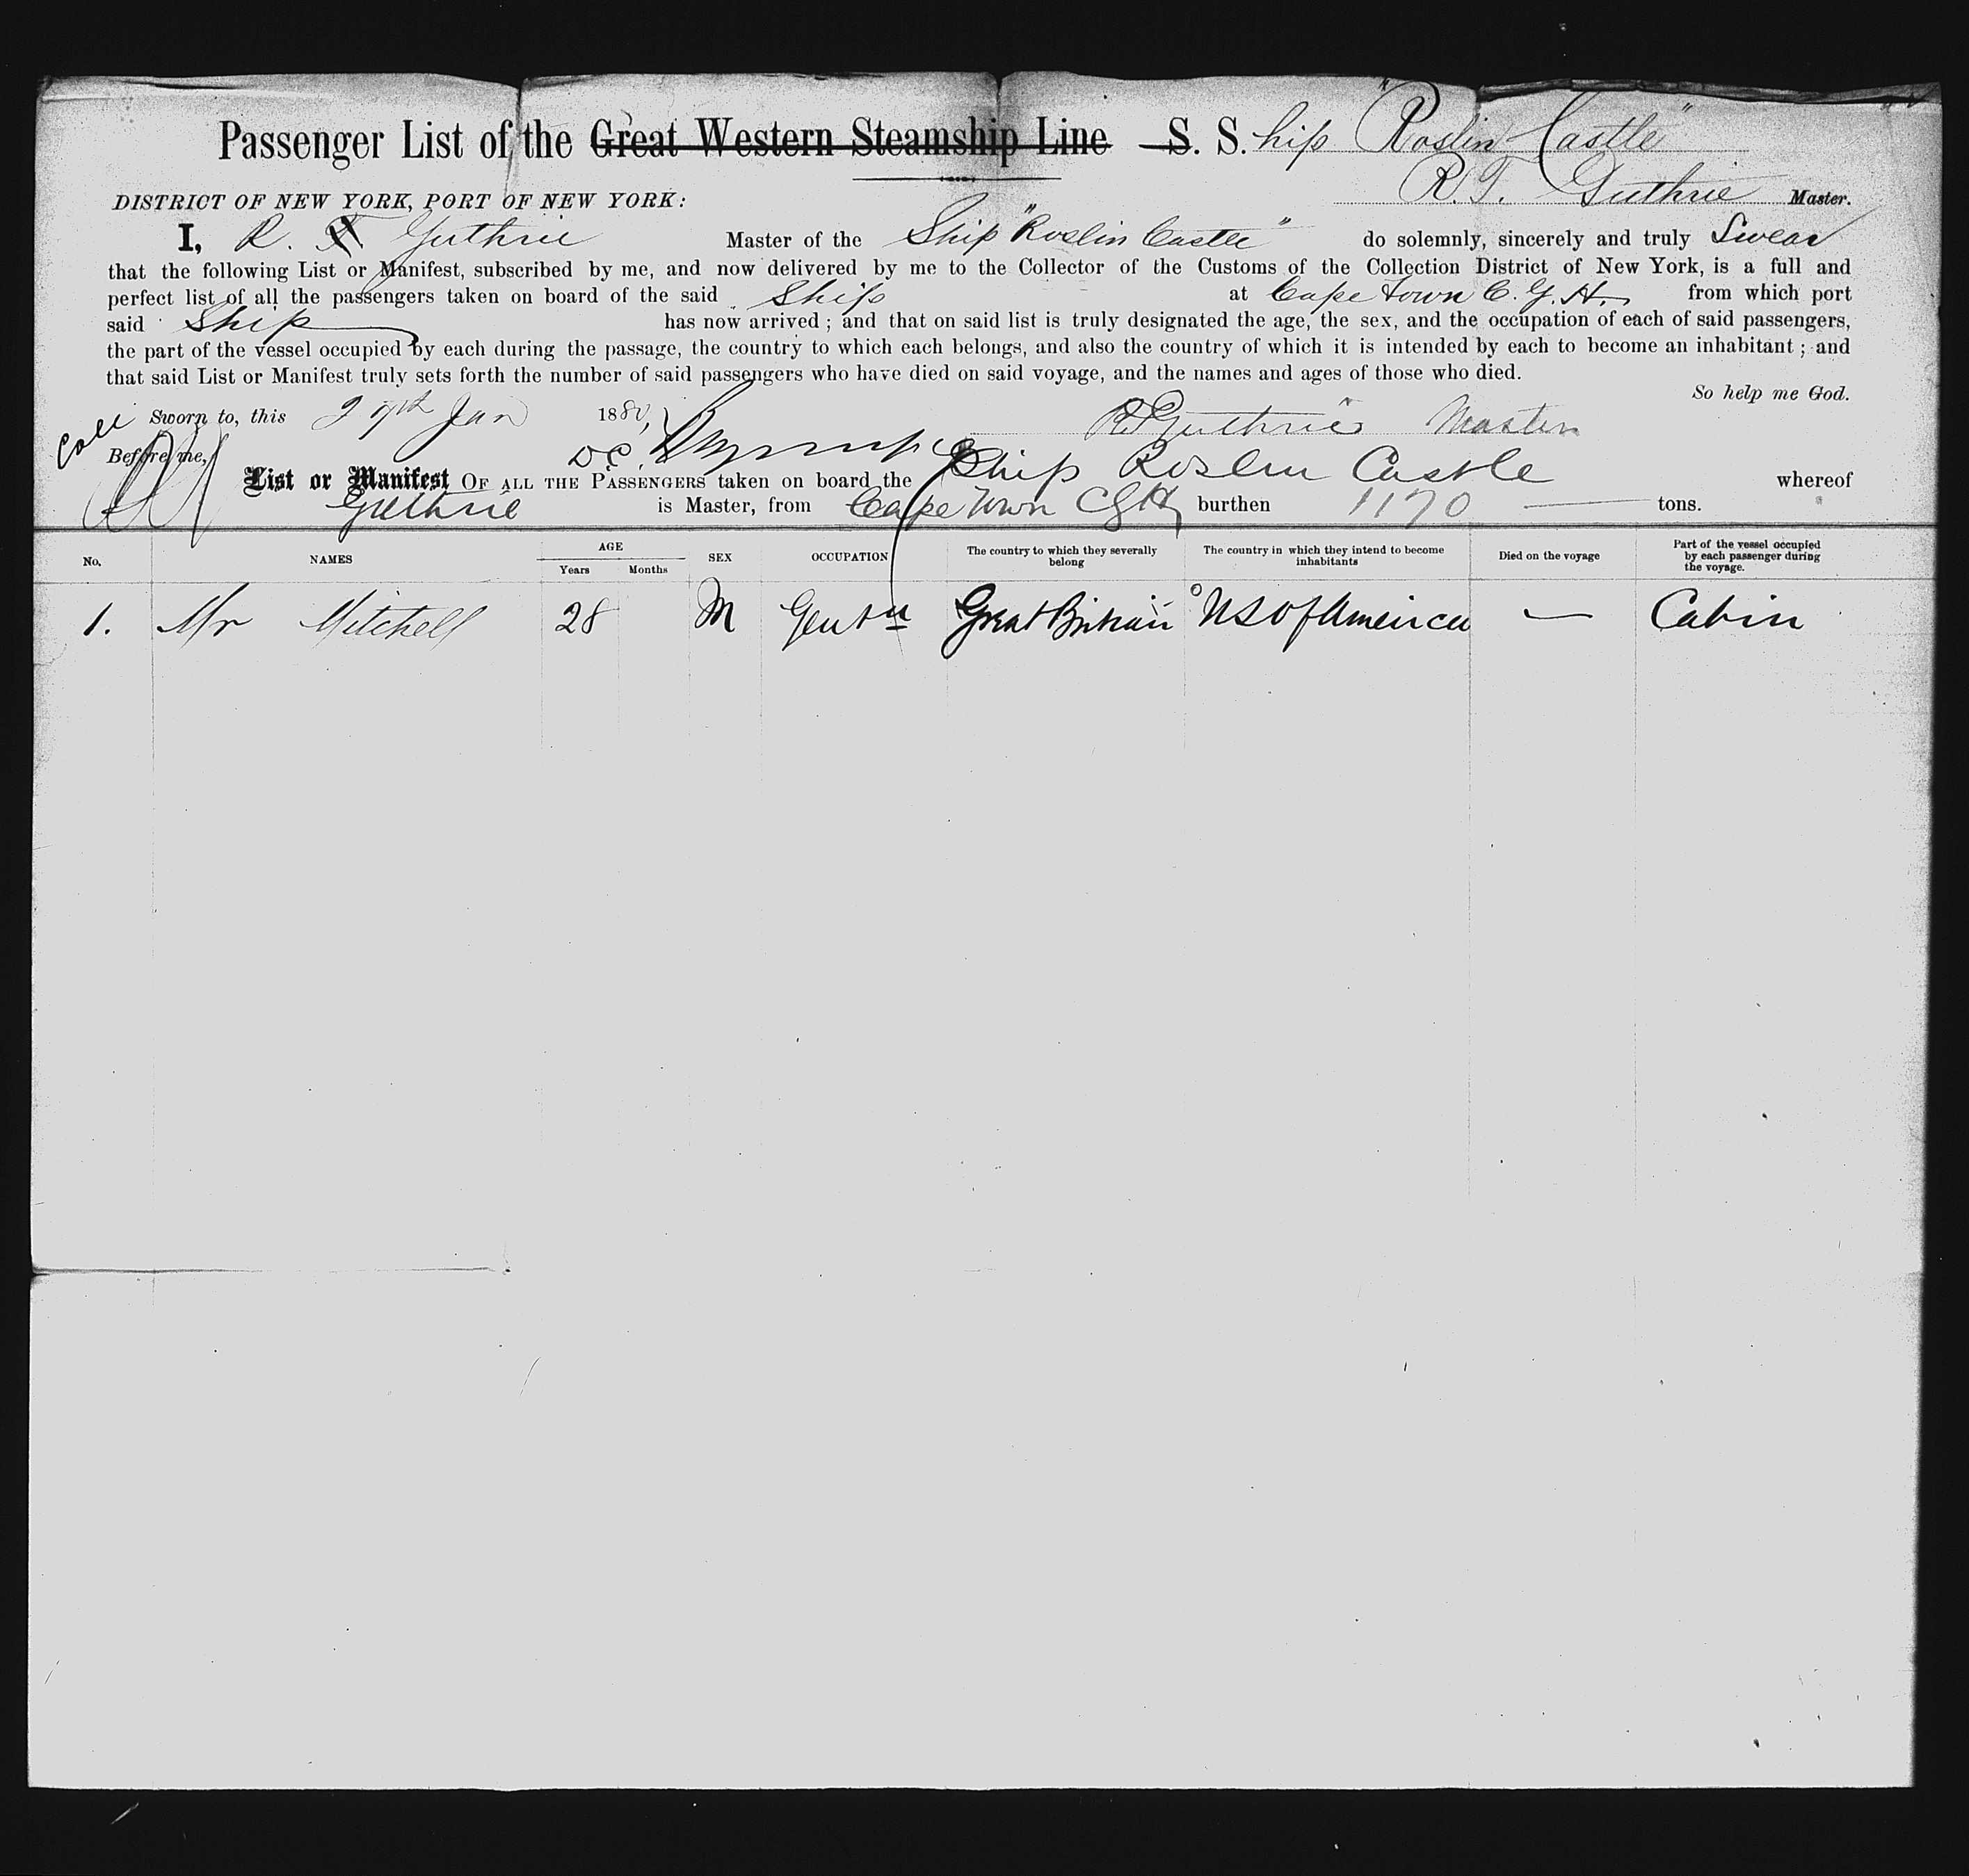 Passenger List of the Great Western Steamship Line S. S. hip "Roslin Castle"
R. T. Guthrie Master.
DISTRICT OF NEW YORK, PORT OF NEW YORK:
I, R. T. Guthrie Master of the Ship "Roslin Castle" do solemnly, sincerely and truly Swear
that the following List or Manifest, subscribed by me, and now delivered by me to the Collector of the Customs of the Collection District of New York, is a full and
perfect list of all the passengers taken on board of the said Ship at Cape Town C. G. H. from which port
said Ship has now arrived; and that on said list is truly designated the age, the sex, and the occupation of each of said passengers,
the part of the vessel occupied by each during the passage, the country to which each belongs, and also the country of which it is intended by each to become an inhabitant; and
that said List or Manifest truly sets forth the number of said passengers who have died on said voyage, and the names and ages of those who died.
So help me God.
Sworn to, this 27th Jan 1880, RTGuthrie Master
Before me, DC
List or Manifest OF ALL THE PASSENGERS taken on board the Ship Roslin Castle whereof
Guthrie is Master, from Cape Town CGH burthen 1170 tons.
No. NAMES AGE Years Months SEX OCCUPATION The country to which they severally belong The country in which they intend to become inhabitants Died on the voyage Part of the vessel occupied by each passenger during the voyage.
1. Mr Mitchell 28 M Gentn Great Britain US of America — Cabin